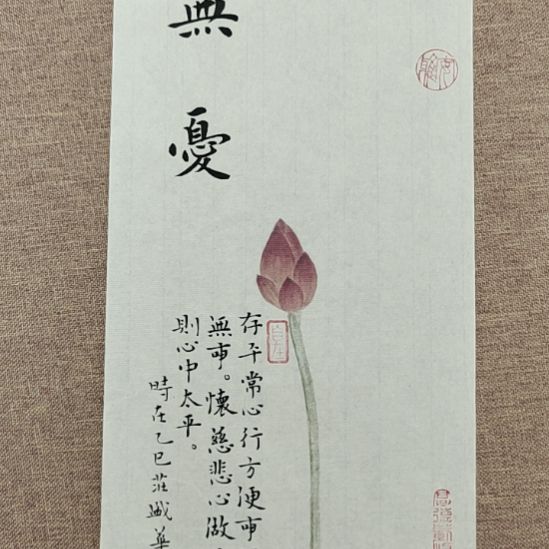 無憂
存平常心行方便事
無事。懷慈悲心做
則心中太平。
時在乙巳莊盛華